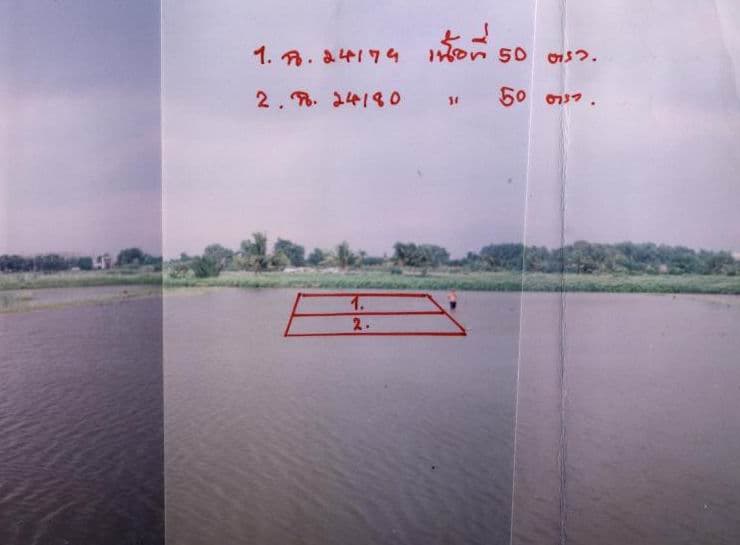 1. ฉ. 24179 เนื้อที่ 50 ตรว.
2. ฉ. 24180 " 50 ตรว.
1.
2.